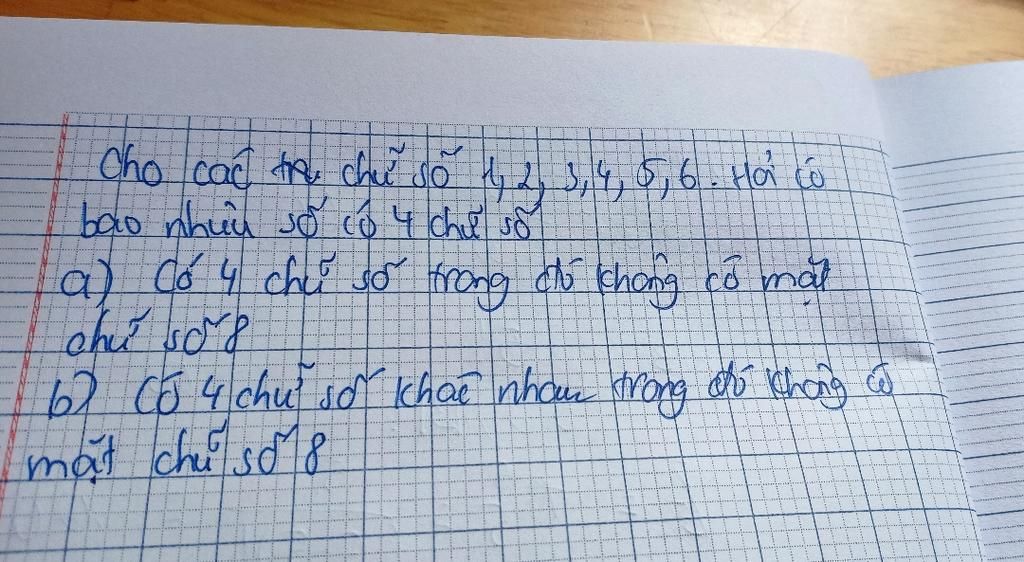 Cho các chữ số 1, 2, 3, 4, 5, 6. Hỏi có
bao nhiêu số có 4 chữ số
a) Có 4 chữ số trong đó không có mặt
chữ số 8
b) Có 4 chữ số khác nhau trong đó không có
mặt chữ số 8